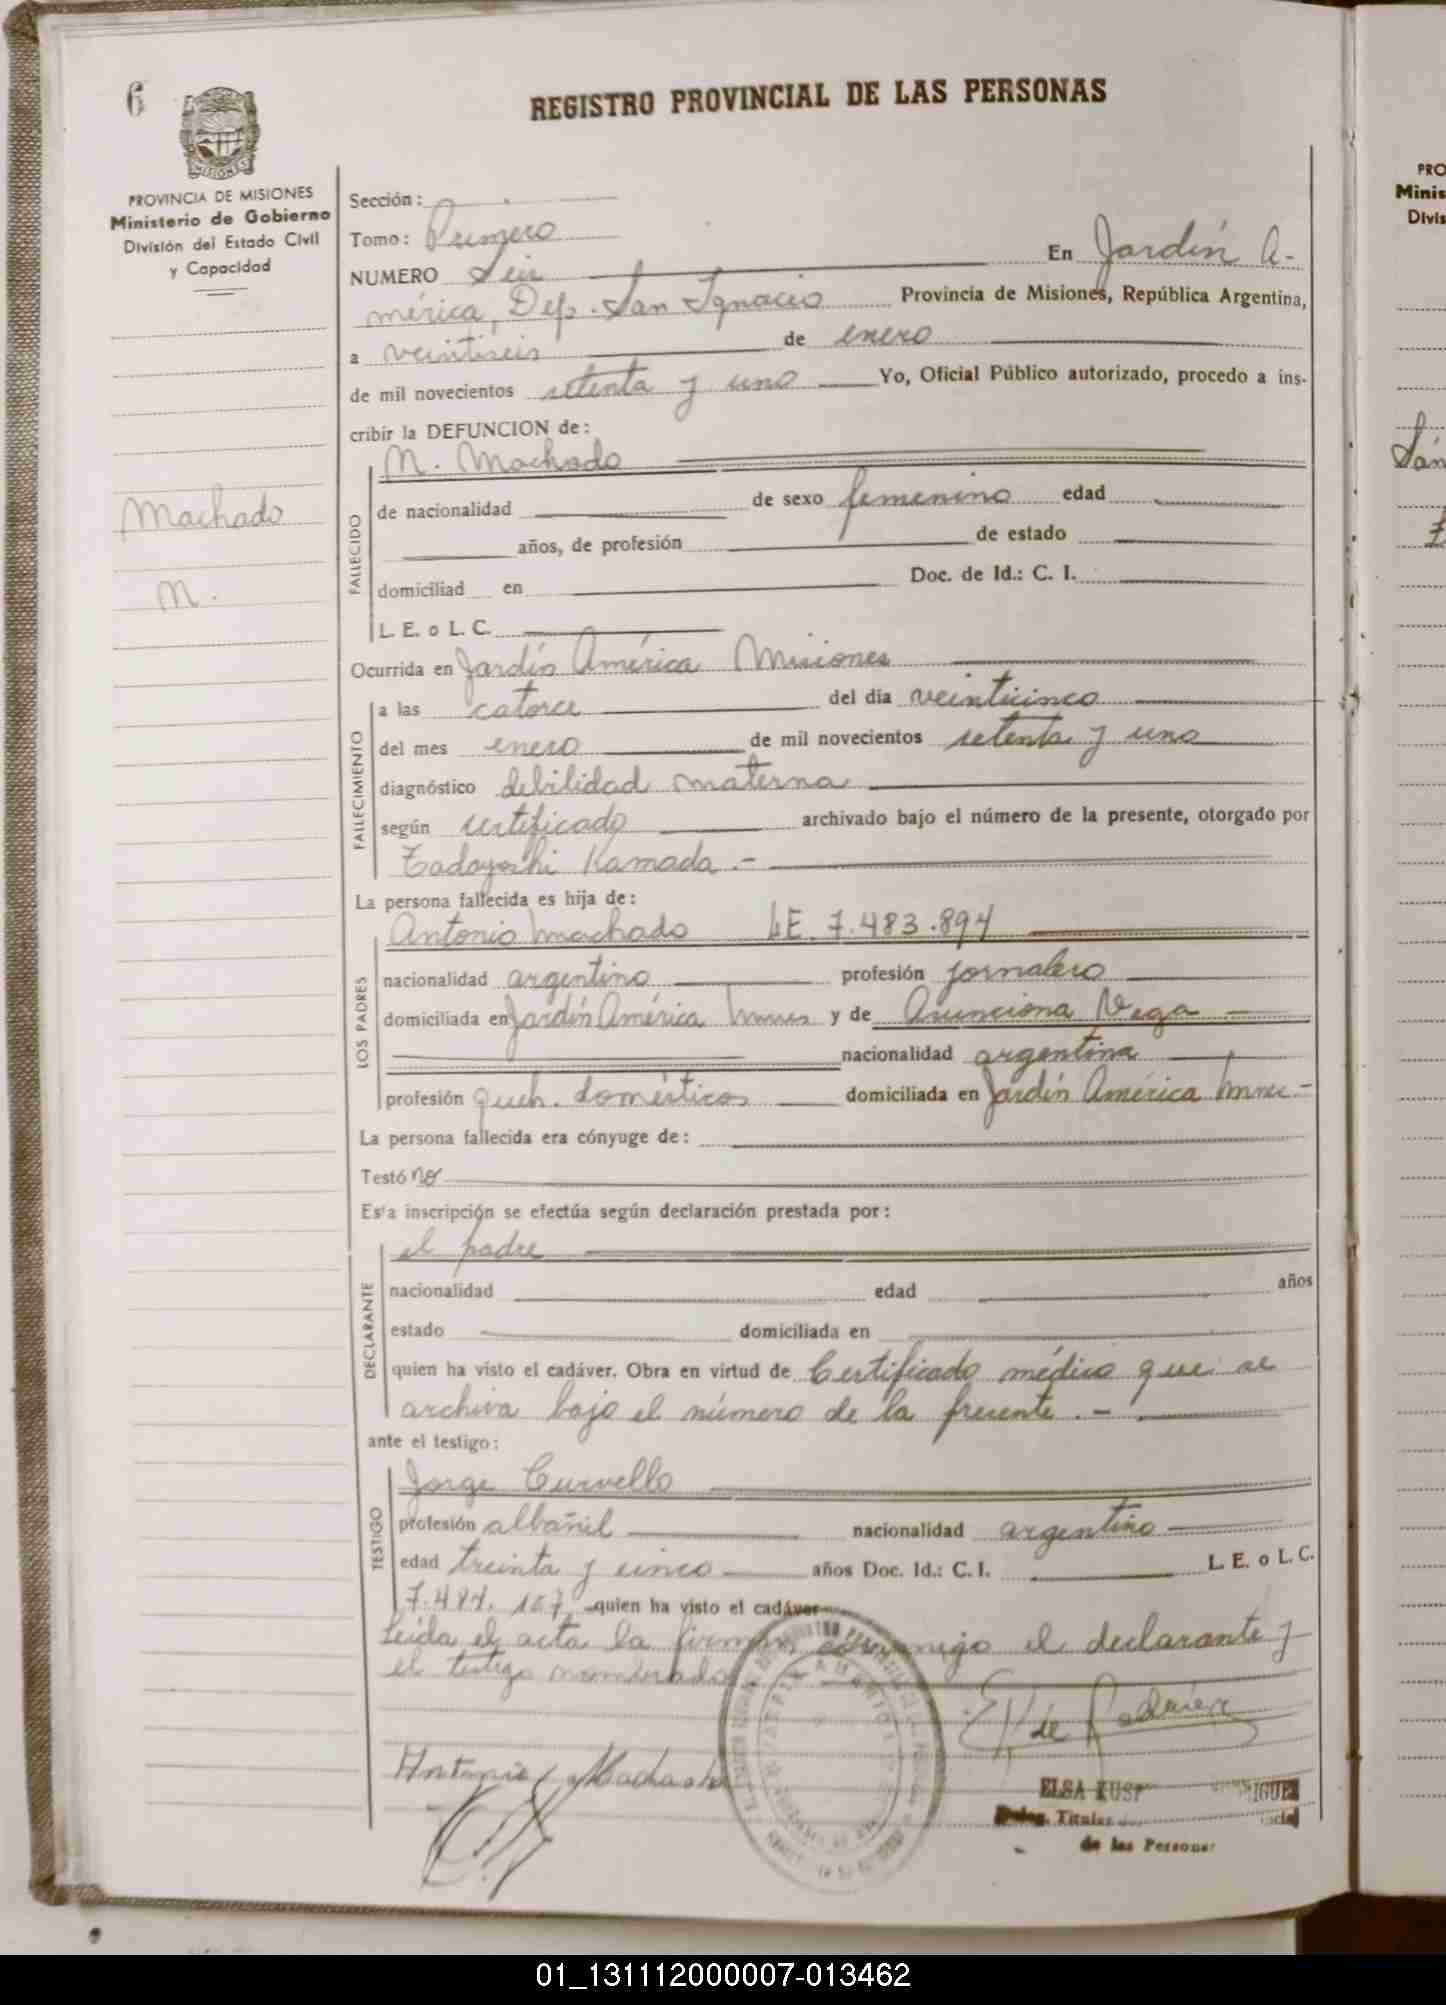 6
REGISTRO PROVINCIAL DE LAS PERSONAS
MISIONES
PROVINCIA DE MISIONES
Ministerio de Gobierno
División del Estado Civil
y Capacidad
Machado
M.
Sección:
Tomo: Primero
NUMERO Seis En Jardín A-
mérica, Dep. San Ignacio Provincia de Misiones, República Argentina,
a veintiseis de enero
de mil novecientos setenta y uno Yo, Oficial Público autorizado, procedo a ins-
cribir la DEFUNCION de:
FALLECIDO
N. Machado
de nacionalidad de sexo femenino edad
años, de profesión de estado
domiciliad en Doc. de Id.: C. I.
L. E. o L. C.
Ocurrida en Jardín América Misiones
FALLECIMIENTO
a las catorce del día veinticinco
del mes enero de mil novecientos setenta y uno
diagnóstico debilidad materna
según certificado archivado bajo el número de la presente, otorgado por
Tadayoshi Kamada.-
La persona fallecida es hija de:
LOS PADRES
Antonio Machado LE. 7.483.894
nacionalidad argentino profesión jornalero
domiciliada en Jardín América y de Asunciona Vega
nacionalidad argentina
profesión queh. domésticos domiciliada en Jardín América
La persona fallecida era cónyuge de:
Testó no
Esta inscripción se efectúa según declaración prestada por:
DECLARANTE
el padre
nacionalidad edad años
estado domiciliada en
quien ha visto el cadáver. Obra en virtud de Certificado médico que se
archiva bajo el número de la presente.-
ante el testigo:
TESTIGO
Jorge Curvello
profesión albañil nacionalidad argentino
edad treinta y cinco años Doc. Id.: C. I. L. E. o L. C.
quien ha visto el cadáver
Leída el acta la firman conmigo el declarante y
el testigo nombrado
Antonio Machado
ELSA
Titular
de las Personas
PRO
Minis
Divis
Sán
01_131112000007-013462